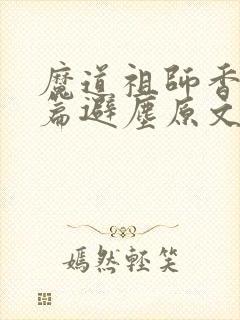 魔道祖師香
篇避塵原文
嫣然輕笑